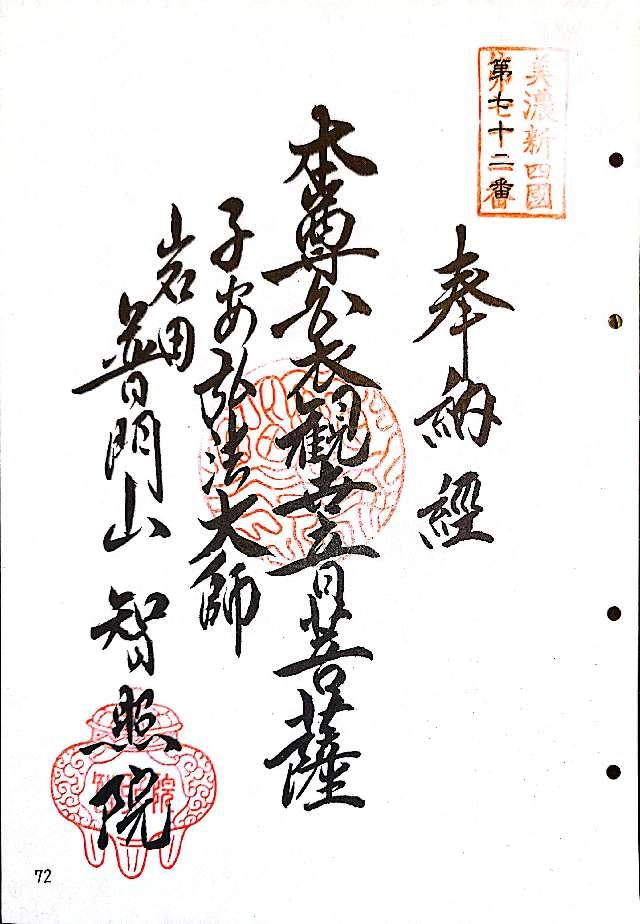 美濃新四國
第七十二番
奉納経
本尊白衣観世音菩薩
子安弘法大師
岩田
普門山 智照院
72